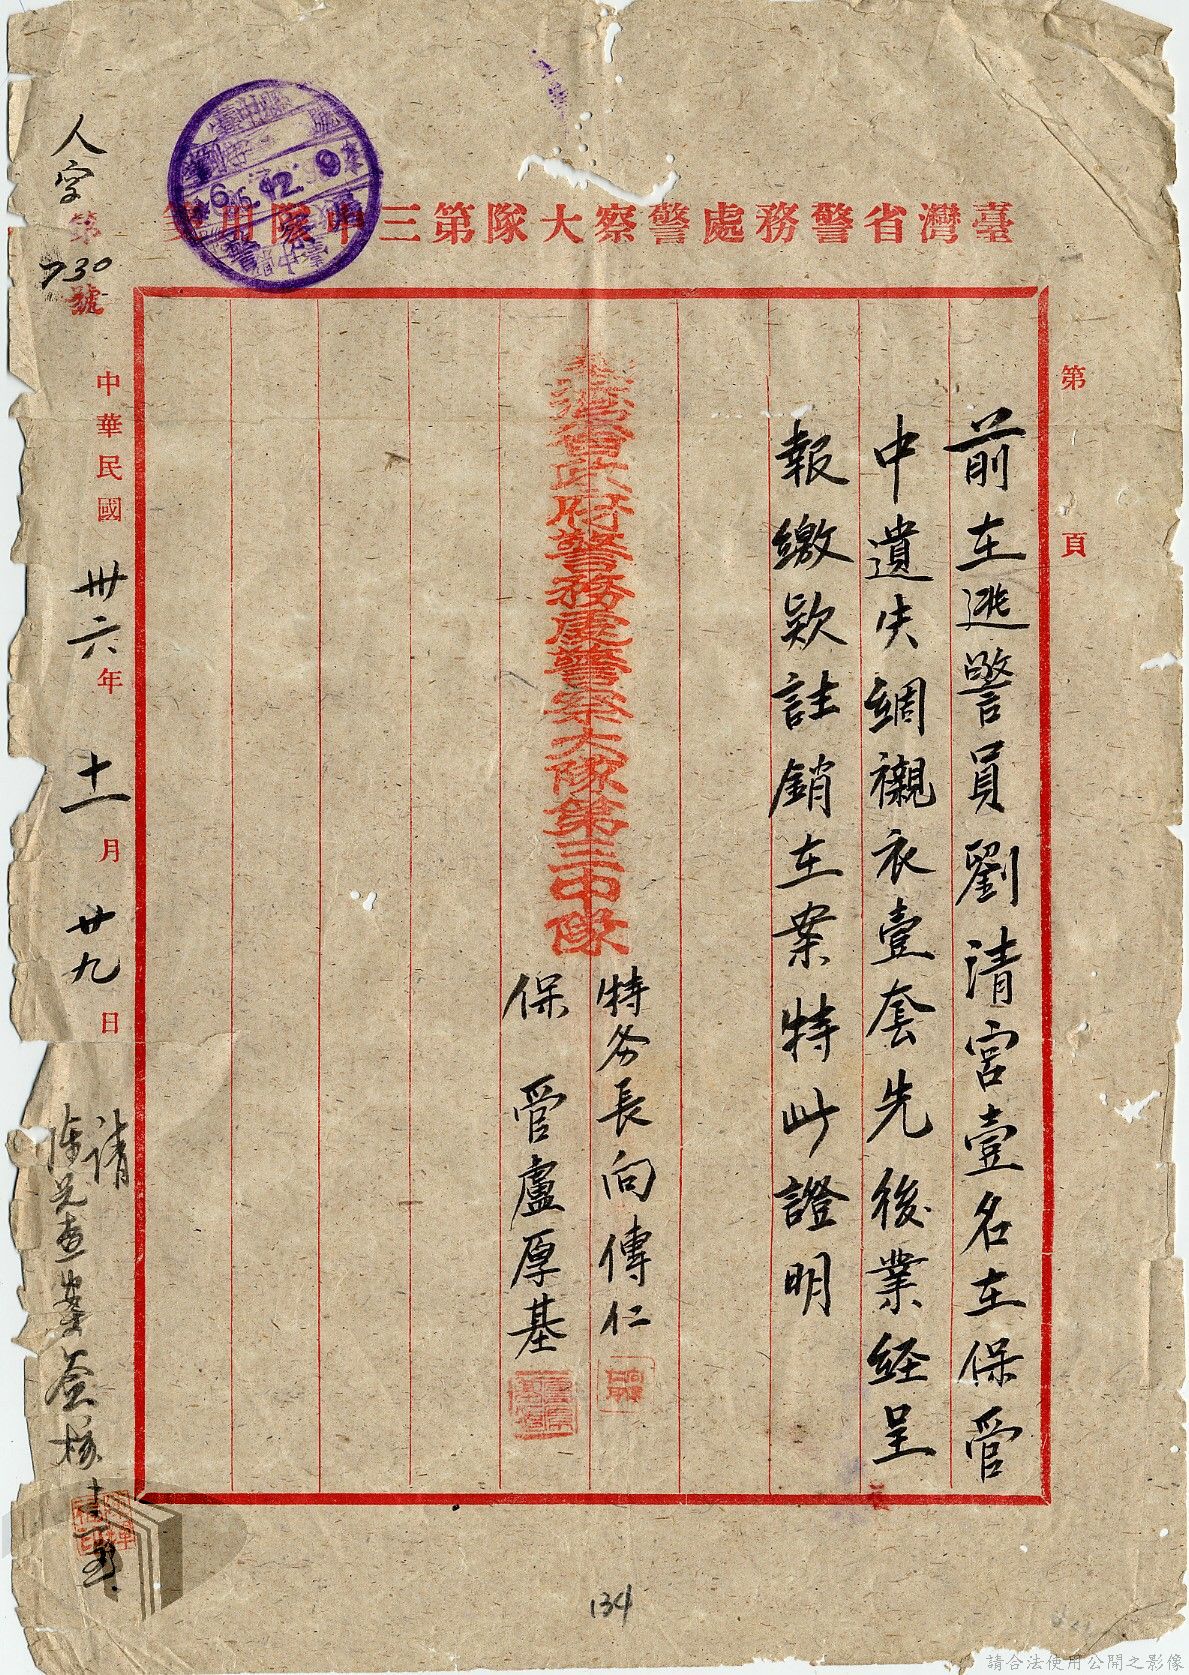 臺灣省警務處警察大隊第三中隊用箋
第 頁
前在逃警員劉清宮壹名在保管
中遺失綢襯衣壹套先後業經呈
報繳款註銷在案特此證明
臺灣省政府警務處警察大隊第三中隊
特务長向傳仁
保管盧厚基
中華民國卅六年十一月廿九日
人字第730號
請
陳兄查案簽核
134
請合法使用公開之影像